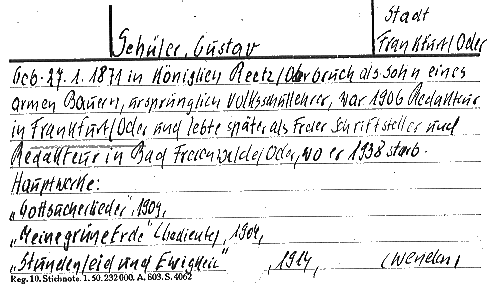 Stadt
Schüler, Gustav
Frankfurt/Oder
Geb. 27.1.1871 in Königlich Reetz/Oderbruch als Sohn eines
armen Bauern, ursprünglich Volksschullehrer, war 1906 Redakteur
in Frankfurt/Oder und lebte später als freier Schriftsteller und
Redakteur in Bad Freienwalde/Oder, wo er 1938 starb.
Hauptwerke:
„Gottsucherlieder", 1909,
„Meine grüne Erde" (Gedichte), 1904,
„Stundenleid und Ewigkeit", 1914, (wenden)
Reg. 10. Stichnote. 1. 50. 232000. A. 803. S. 4062